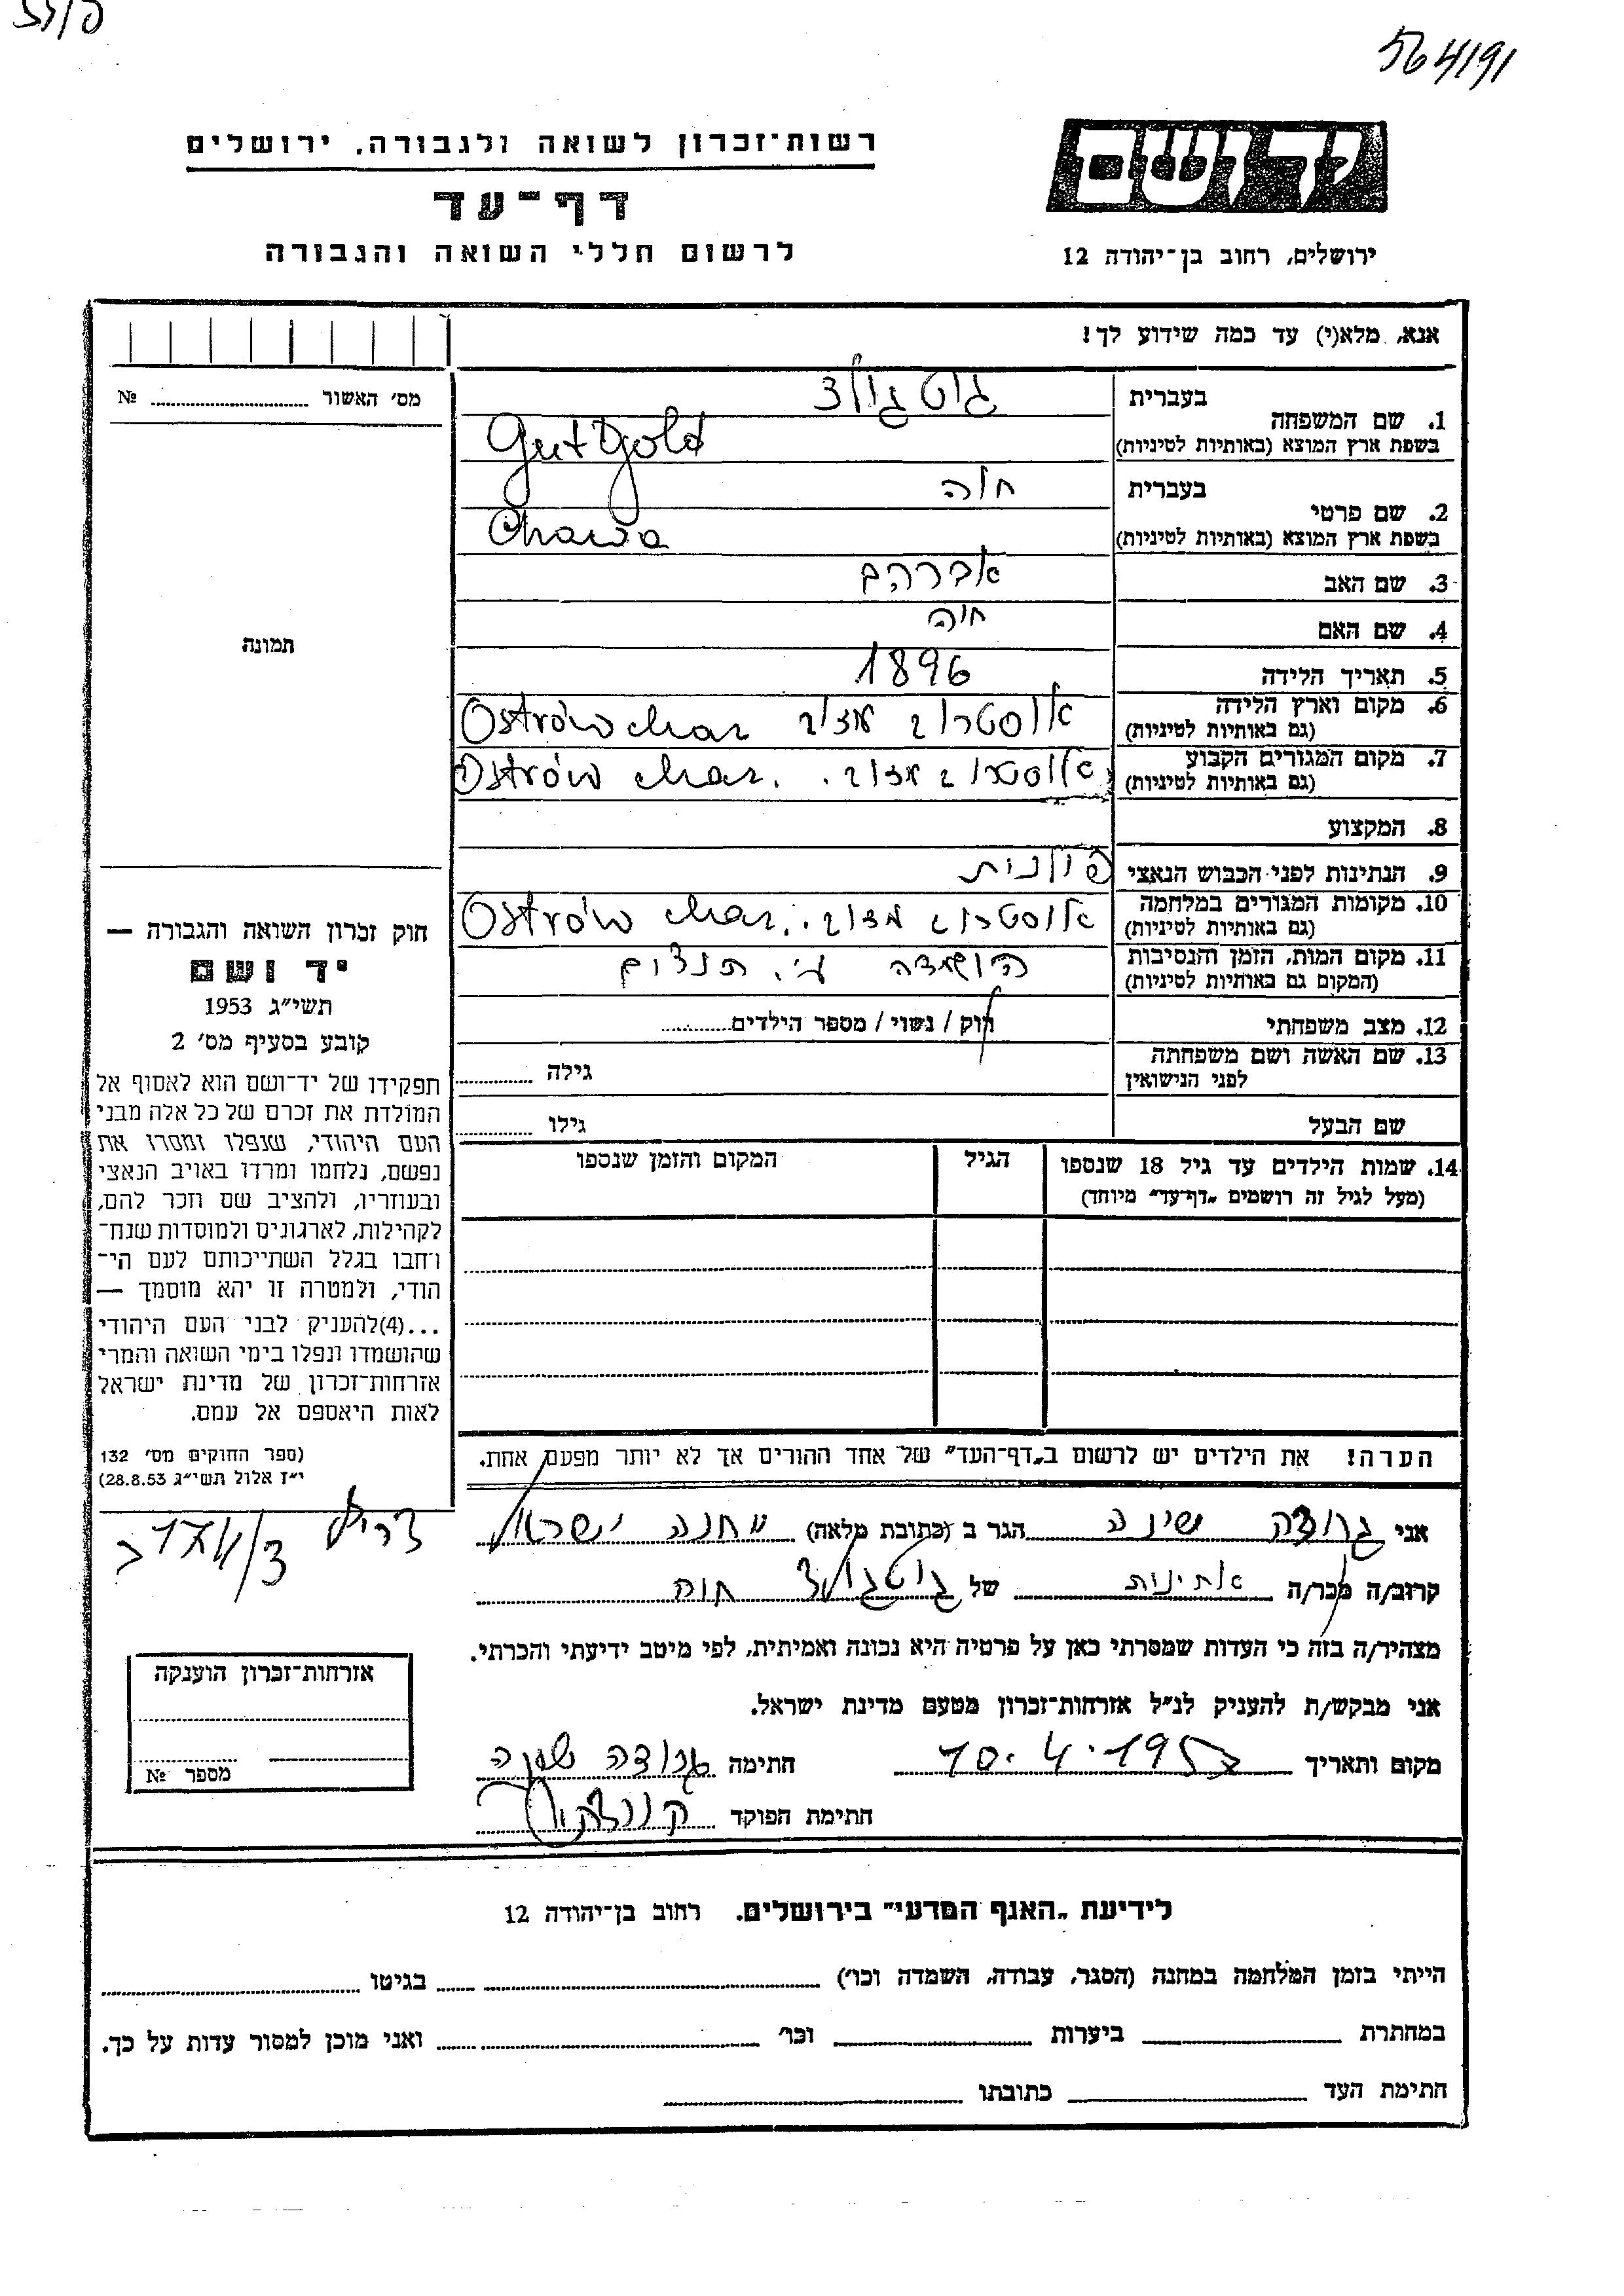 564191
רשות־זכרון לשואה ולגבורה, ירושלים
דף־עד
לרשום חללי השואה והגבורה
יד ושם
ירושלים, רחוב בן־יהודה 12
אנא, מלא(י) עד כמה שידוע לך!
מס׳ האשור № 
1. שם המשפחה בעברית גוטגולד
בשפת ארץ המוצא (באותיות לטיניות) Gutgold
2. שם פרטי בעברית חוה
בשפת ארץ המוצא (באותיות לטיניות) Chawa
3. שם האב אברהם
4. שם האם חוה
5. תאריך הלידה 1896
6. מקום וארץ הלידה אוסטרוב מזוב Ostrów Maz
(גם באותיות לטיניות)
7. מקום המגורים הקבוע אוסטרוב מזוב. Ostrów Maz.
(גם באותיות לטיניות)
8. המקצוע
9. הנתינות לפני הכבוש הנאצי פולנית
10. מקומות המגורים במלחמה אוסטרוב מזוב. Ostrów Maz.
(גם באותיות לטיניות)
11. מקום המות, הזמן והנסיבות הושמדה
(המקום גם באותיות לטיניות)
12. מצב משפחתי רוק / נשוי / מספר הילדים
13. שם האשה ושם משפחתה גילה
לפני הנישואין
שם הבעל גילו
14. שמות הילדים עד גיל 18 שנספו הגיל המקום והזמן שנספו
(מעל לגיל זה רושמים „דף־עד״ מיוחד)
הערה! את הילדים יש לרשום ב„דף־העד״ של אחד ההורים אך לא יותר מפעם אחת.
תמונה
חוק זכרון השואה והגבורה —
יד ושם
תשי״ג 1953
קובע בסעיף מס׳ 2
תפקידו של יד־ושם הוא לאסוף אל
המולדת את זכרם של כל אלה מבני
העם היהודי, שנפלו ומסרו את
נפשם, נלחמו ומרדו באויב הנאצי
ובעוזריו, ולהציב שם וזכר להם,
לקהילות, לארגונים ולמוסדות שנח־
רחבו בגלל השתייכותם לעם הי־
הודי, ולמטרה זו יהא מוסמך —
...(4)להעניק לבני העם היהודי
שהושמדו ונפלו בימי השואה והמרי
אזרחות־זכרון של מדינת ישראל
לאות היאספם אל עמם.
(ספר החוקים מס׳ 132
י״ז אלול תשי״ג 28.8.53)
אני שינה הגר ב (כתובת מלאה) מחנה ישראל
צריף
קרוב/ה מכר/ה של גוטגולד חוה
מצהיר/ה בזה כי העדות שמסרתי כאן על פרטיה היא נכונה ואמיתית, לפי מיטב ידיעתי והכרתי.
אני מבקש/ת להעניק לנ״ל אזרחות־זכרון מטעם מדינת ישראל.
מקום ותאריך 10.4.195 חתימה
חתימת הפוקד
אזרחות־זכרון הוענקה
מספר №
לידיעת „האגף המדעי״ בירושלים. רחוב בן־יהודה 12
הייתי בזמן המלחמה במחנה (הסגר, עבודה, השמדה וכו׳) בגיטו
במחתרת ביערות וכו׳ ואני מוכן למסור עדות על כך.
חתימת העד כתובתו